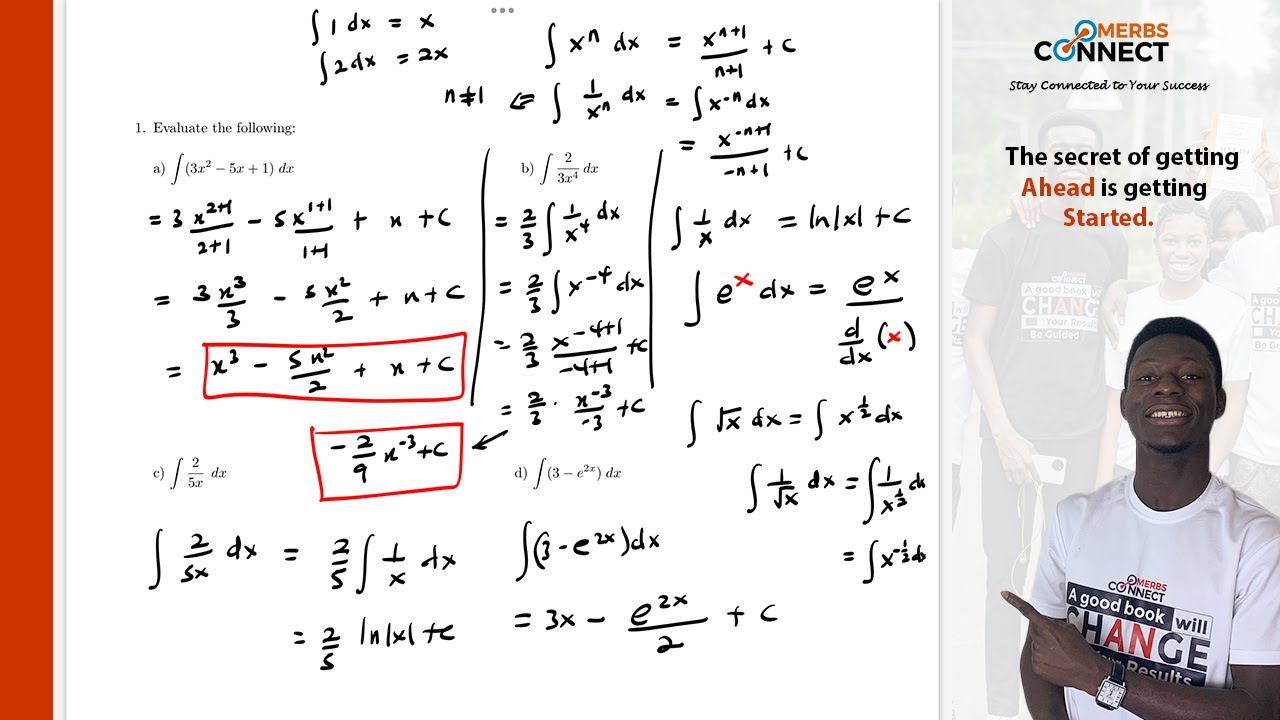 ∫ 1 dx = x
∫ 2 dx = 2x
∫ xⁿ dx = xⁿ⁺¹/(n+1) + c
n≠1 ⇐ ∫ 1/xⁿ dx = ∫ x⁻ⁿ dx
= x⁻ⁿ⁺¹/(-n+1) + c
1. Evaluate the following:
a) ∫(3x² − 5x + 1) dx
= 3 x²⁺¹/(2+1) − 5x¹⁺¹/(1+1) + x + c
= 3x³/3 − 5x²/2 + x + c
= x³ − 5x²/2 + x + c
b) ∫ 2/(3x⁴) dx
= 2/3 ∫ 1/x⁴ dx
= 2/3 ∫ x⁻⁴ dx
= 2/3 x⁻⁴⁺¹/(-4+1) + c
= 2/3 · x⁻³/-3 + c
−2/9 x⁻³ + c
∫ 1/x dx = ln|x| + c
∫ eˣ dx = eˣ / d/dx (x)
∫ √x dx = ∫ x^(1/2) dx
∫ 1/√x dx = ∫ 1/x^(1/2) dx
= ∫ x^(-1/2) dx
c) ∫ 2/(5x) dx
∫ 2/(5x) dx = 2/5 ∫ 1/x dx
= 2/5 ln|x| + c
d) ∫(3 − e²ˣ) dx
∫(3 − e²ˣ) dx
= 3x − e²ˣ/2 + c
OMERBS
CONNECT
Stay Connected to Your Success
The secret of getting
Ahead is getting
Started.
MERBS
CONNECT
A good book
CHANGE
Your Result
Be Guided
OMERBS
CONNECT
A good book will
CHANGE
Your Results